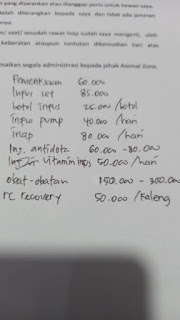 yang disarankan atau dianggap perlu untuk hewan saya.
telah diterangkan kepada saya dan tidak ada jaminan
/ saat/ sesudah rawat inap sudah saya mengerti, oleh
keberatan ataupun tuntutan dikemudian hari atas
esaikan segala administrasi kepada pihak Animal Zone.
Pemeriksaan 60.000
Infus set 85.000
botol infus 25.000 /botol
Infus pump 40.000 /hari
inap 80.000 /hari
Inj. antidota 60.000 - 80.000
Inj. vitamin 50.000 /hari
obat-obatan 150.000 - 300.000
rc recovery 50.000 /kaleng